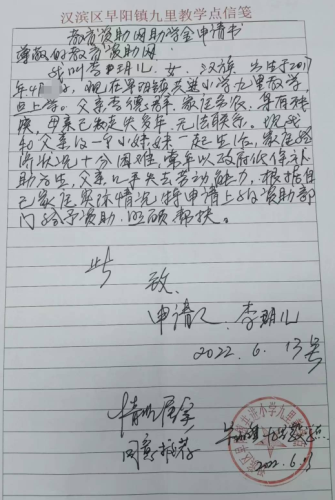 汉滨区早阳镇九里教学点信笺
教育资助网助学金申请书
尊敬的教育资助网:
我叫李玥儿,女,汉族,出生于2017
年4月,现在早阳镇 小学九里教学
点上学。父亲李德群,家庭务农,身有残
疾,母亲已 走失多年,无法联系。现我
和父亲及一个小妹妹一起生活,家庭经
济状况十分困难,常年以政府低保补
助为生,父亲几乎失去劳动能力,根据自
己家庭实际情况特申请上级资助部
门给予资助、照顾帮扶。
此
致
申请人:李玥儿
2022.6.13号
情况属实
同意推荐
早阳镇九里教学点
2022.6.13